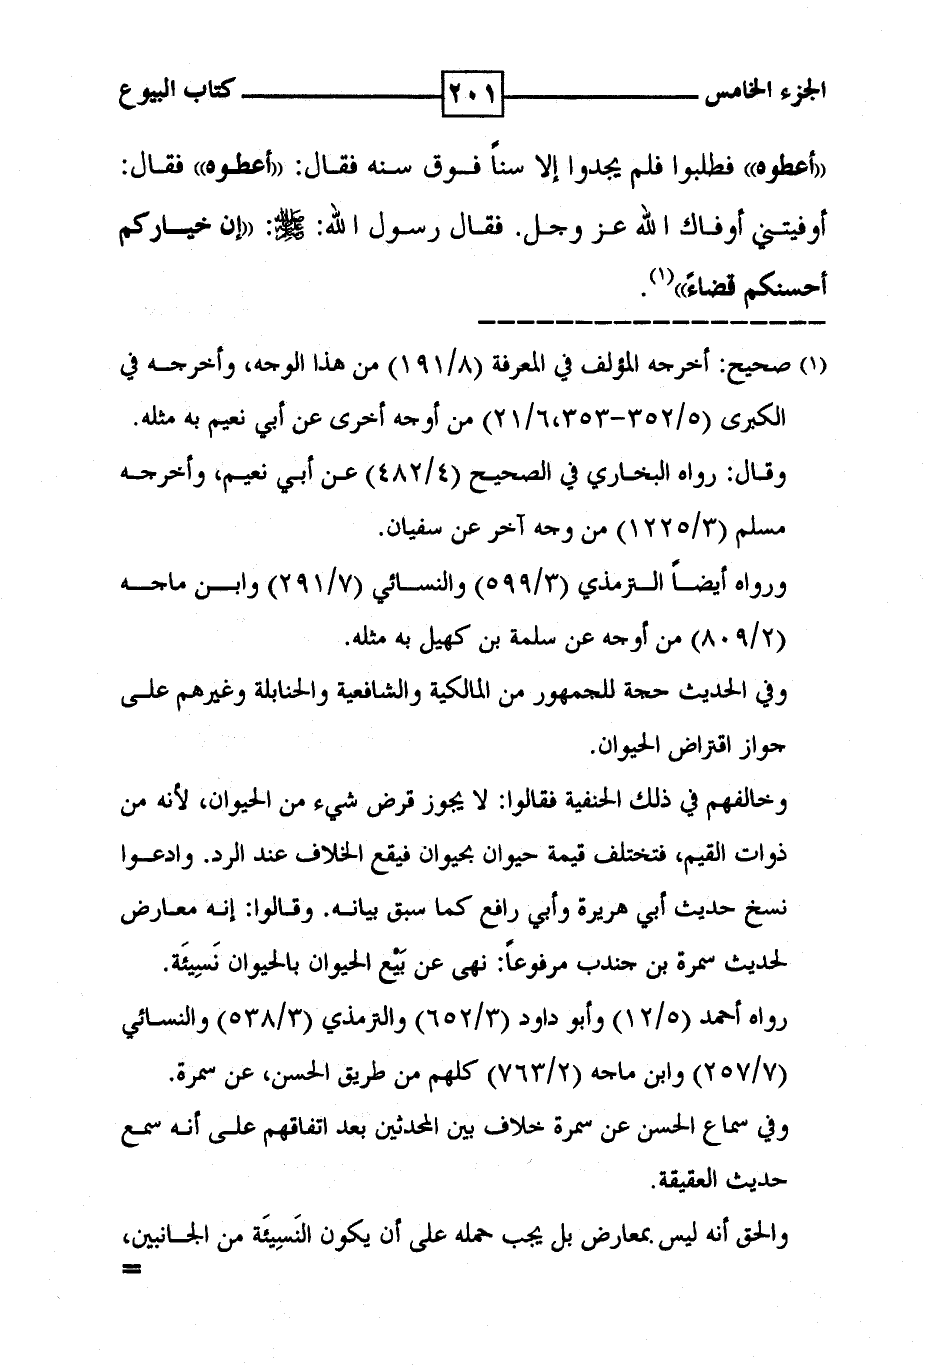 الجزء الخامس ٢٠١ كتاب البيوع
((أعطوه)) فطلبوا فلم يجدوا إلا سناً فوق سنه فقال: ((أعطوه)) فقال:
أوفيتني أوفاك الله عز وجل. فقال رسول الله: ﷺ: ((إن خياركم
أحسنكم قضاءً))(١).
(١) صحيح: أخرجه المؤلف في المعرفة (١٩١/٨) من هذا الوجه، وأخرجه في
الكبرى (٣٥٢/٥-٢١/٦،٣٥٣) من أوجه أخرى عن أبي نعيم به مثله.
وقال: رواه البخاري في الصحيح (٤٨٢/٤) عن أبي نعيم، وأخرجه
مسلم (١٢٢٥/٣) من وجه آخر عن سفيان.
ورواه أيضاً الترمذي (٥٩٩/٣) والنسائي (٢٩١/٧) وابن ماجه
(٨٠٩/٢) من أوجه عن سلمة بن كهيل به مثله.
وفي الحديث حجة للجمهور من المالكية والشافعية والحنابلة وغيرهم على
جواز اقتراض الحيوان.
وخالفهم في ذلك الحنفية فقالوا: لا يجوز قرض شيء من الحيوان، لأنه من
ذوات القيم، فتختلف قيمة حيوان بحيوان فيقع الخلاف عند الرد. وادعوا
نسخ حديث أبي هريرة وأبي رافع كما سبق بيانه. وقالوا: إنه معارض
لحديث سمرة بن جندب مرفوعاً: نهى عن بَيْع الحيوان بالحيوان نَسِيئَة.
رواه أحمد (١٢/٥) وأبو داود (٦٥٢/٣) والترمذي (٥٣٨/٣) والنسائي
(٢٥٧/٧) وابن ماجه (٧٦٣/٢) كلهم من طريق الحسن، عن سمرة.
وفي سماع الحسن عن سمرة خلاف بين المحدثين بعد اتفاقهم على أنه سمع
حديث العقيقة.
والحق أنه ليس بمعارض بل يجب حمله على أن يكون النَسِيئَة من الجانبين،
=